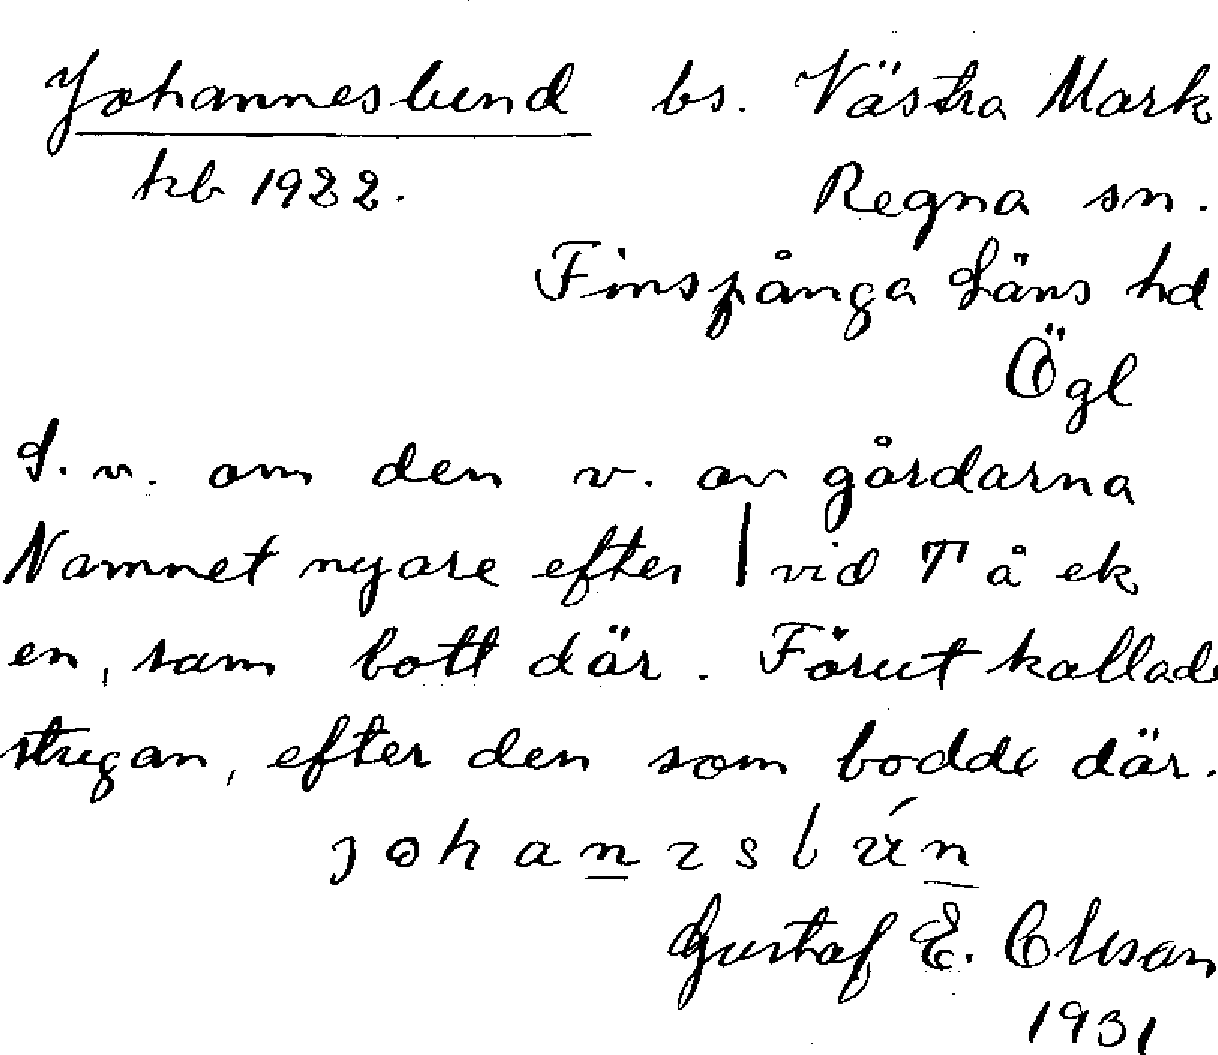 Johanneslund bs. Västra Mark
kb 1922. Regna sn.
Finspånga Läns hd
Ögl
S. v. om den v. av gårdarna
Namnet nyare efter | vid Tå ek
en, som bott där. Förut kallade
stugan, efter den som bodde där.
Gustaf E. Olsson
1931